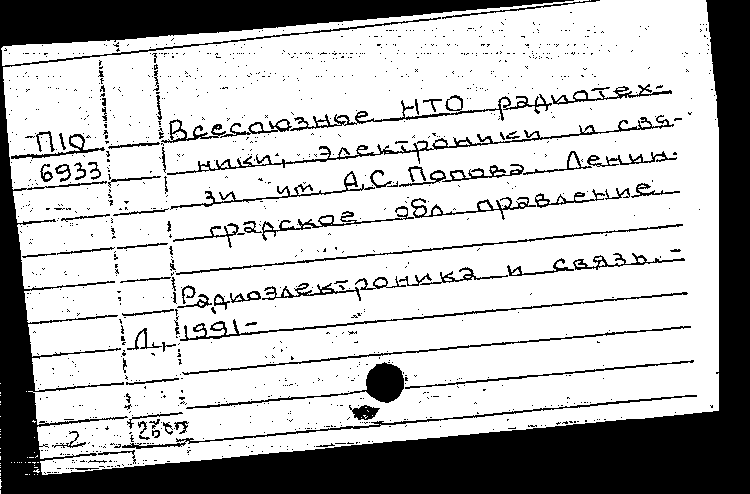 Всесоюзное НТО радиотех-
П10
ники, электроники и свя-
6933
зи им. А.С. Попова. Ленин-
градское обл. правление.
Радиоэлектроника и связь. -
Л., 1991-
2